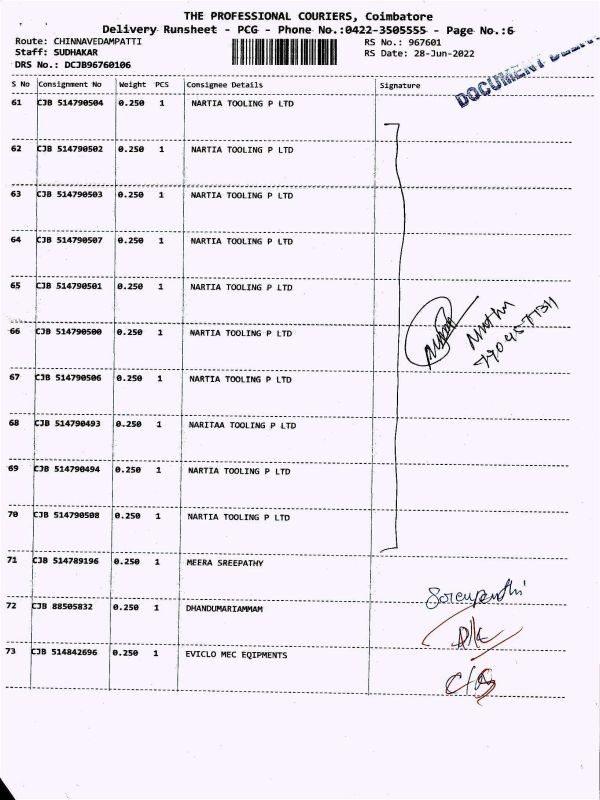 THE PROFESSIONAL COURIERS, Coimbatore
Delivery Runsheet - PCG - Phone No.:0422-3505555 - Page No.:6
Route: CHINNAVEDAMPATTI RS No.: 967601
Staff: SUDHAKAR RS Date: 28-Jun-2022
DRS No.: DCJB96760106
DOCUMENT
S No Consignment No Weight PCS Consignee Details Signature
61 CJB 514790504 0.250 1 NARTIA TOOLING P LTD
62 CJB 514790502 0.250 1 NARTIA TOOLING P LTD
63 CJB 514790503 0.250 1 NARTIA TOOLING P LTD
64 CJB 514790507 0.250 1 NARTIA TOOLING P LTD
65 CJB 514790501 0.250 1 NARTIA TOOLING P LTD
66 CJB 514790500 0.250 1 NARTIA TOOLING P LTD
67 CJB 514790506 0.250 1 NARTIA TOOLING P LTD
68 CJB 514790493 0.250 1 NARITAA TOOLING P LTD
69 CJB 514790494 0.250 1 NARTIA TOOLING P LTD
70 CJB 514790508 0.250 1 NARTIA TOOLING P LTD
71 CJB 514789196 0.250 1 MEERA SREEPATHY
72 CJB 88505832 0.250 1 DHANDUMARIAMMAM
73 CJB 514842696 0.250 1 EVICLO MEC EQIPMENTS